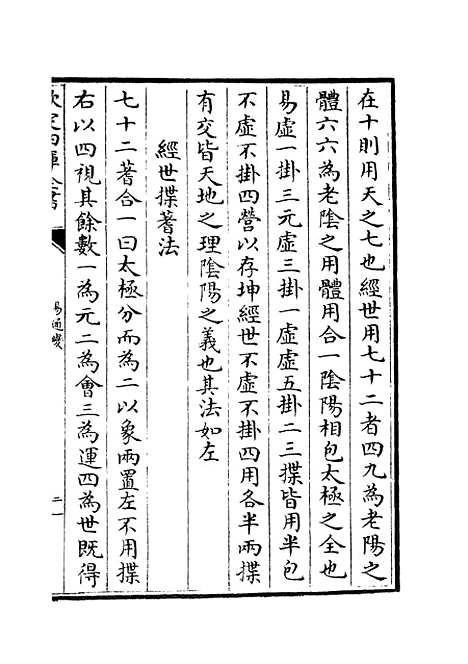 在十則用天之七也經世用七十二者四九為老陽之
體六六為老陰之用體用合一陰陽相包太極之全也
易虛一掛三元虛三掛一虛虛五掛二三揲皆用半包
不虛不掛四營以存坤經世不虛不掛四用各半兩揲
有交皆天地之理陰陽之義也其法如左
經世揲蓍法
七十二蓍合一曰太極分而為二以象兩置左不用揲
右以四視其餘數一為元二為會三為運四為世既得
欽定四庫全書
易通變
二